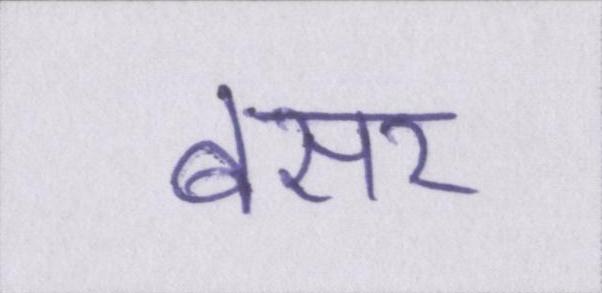 बसर